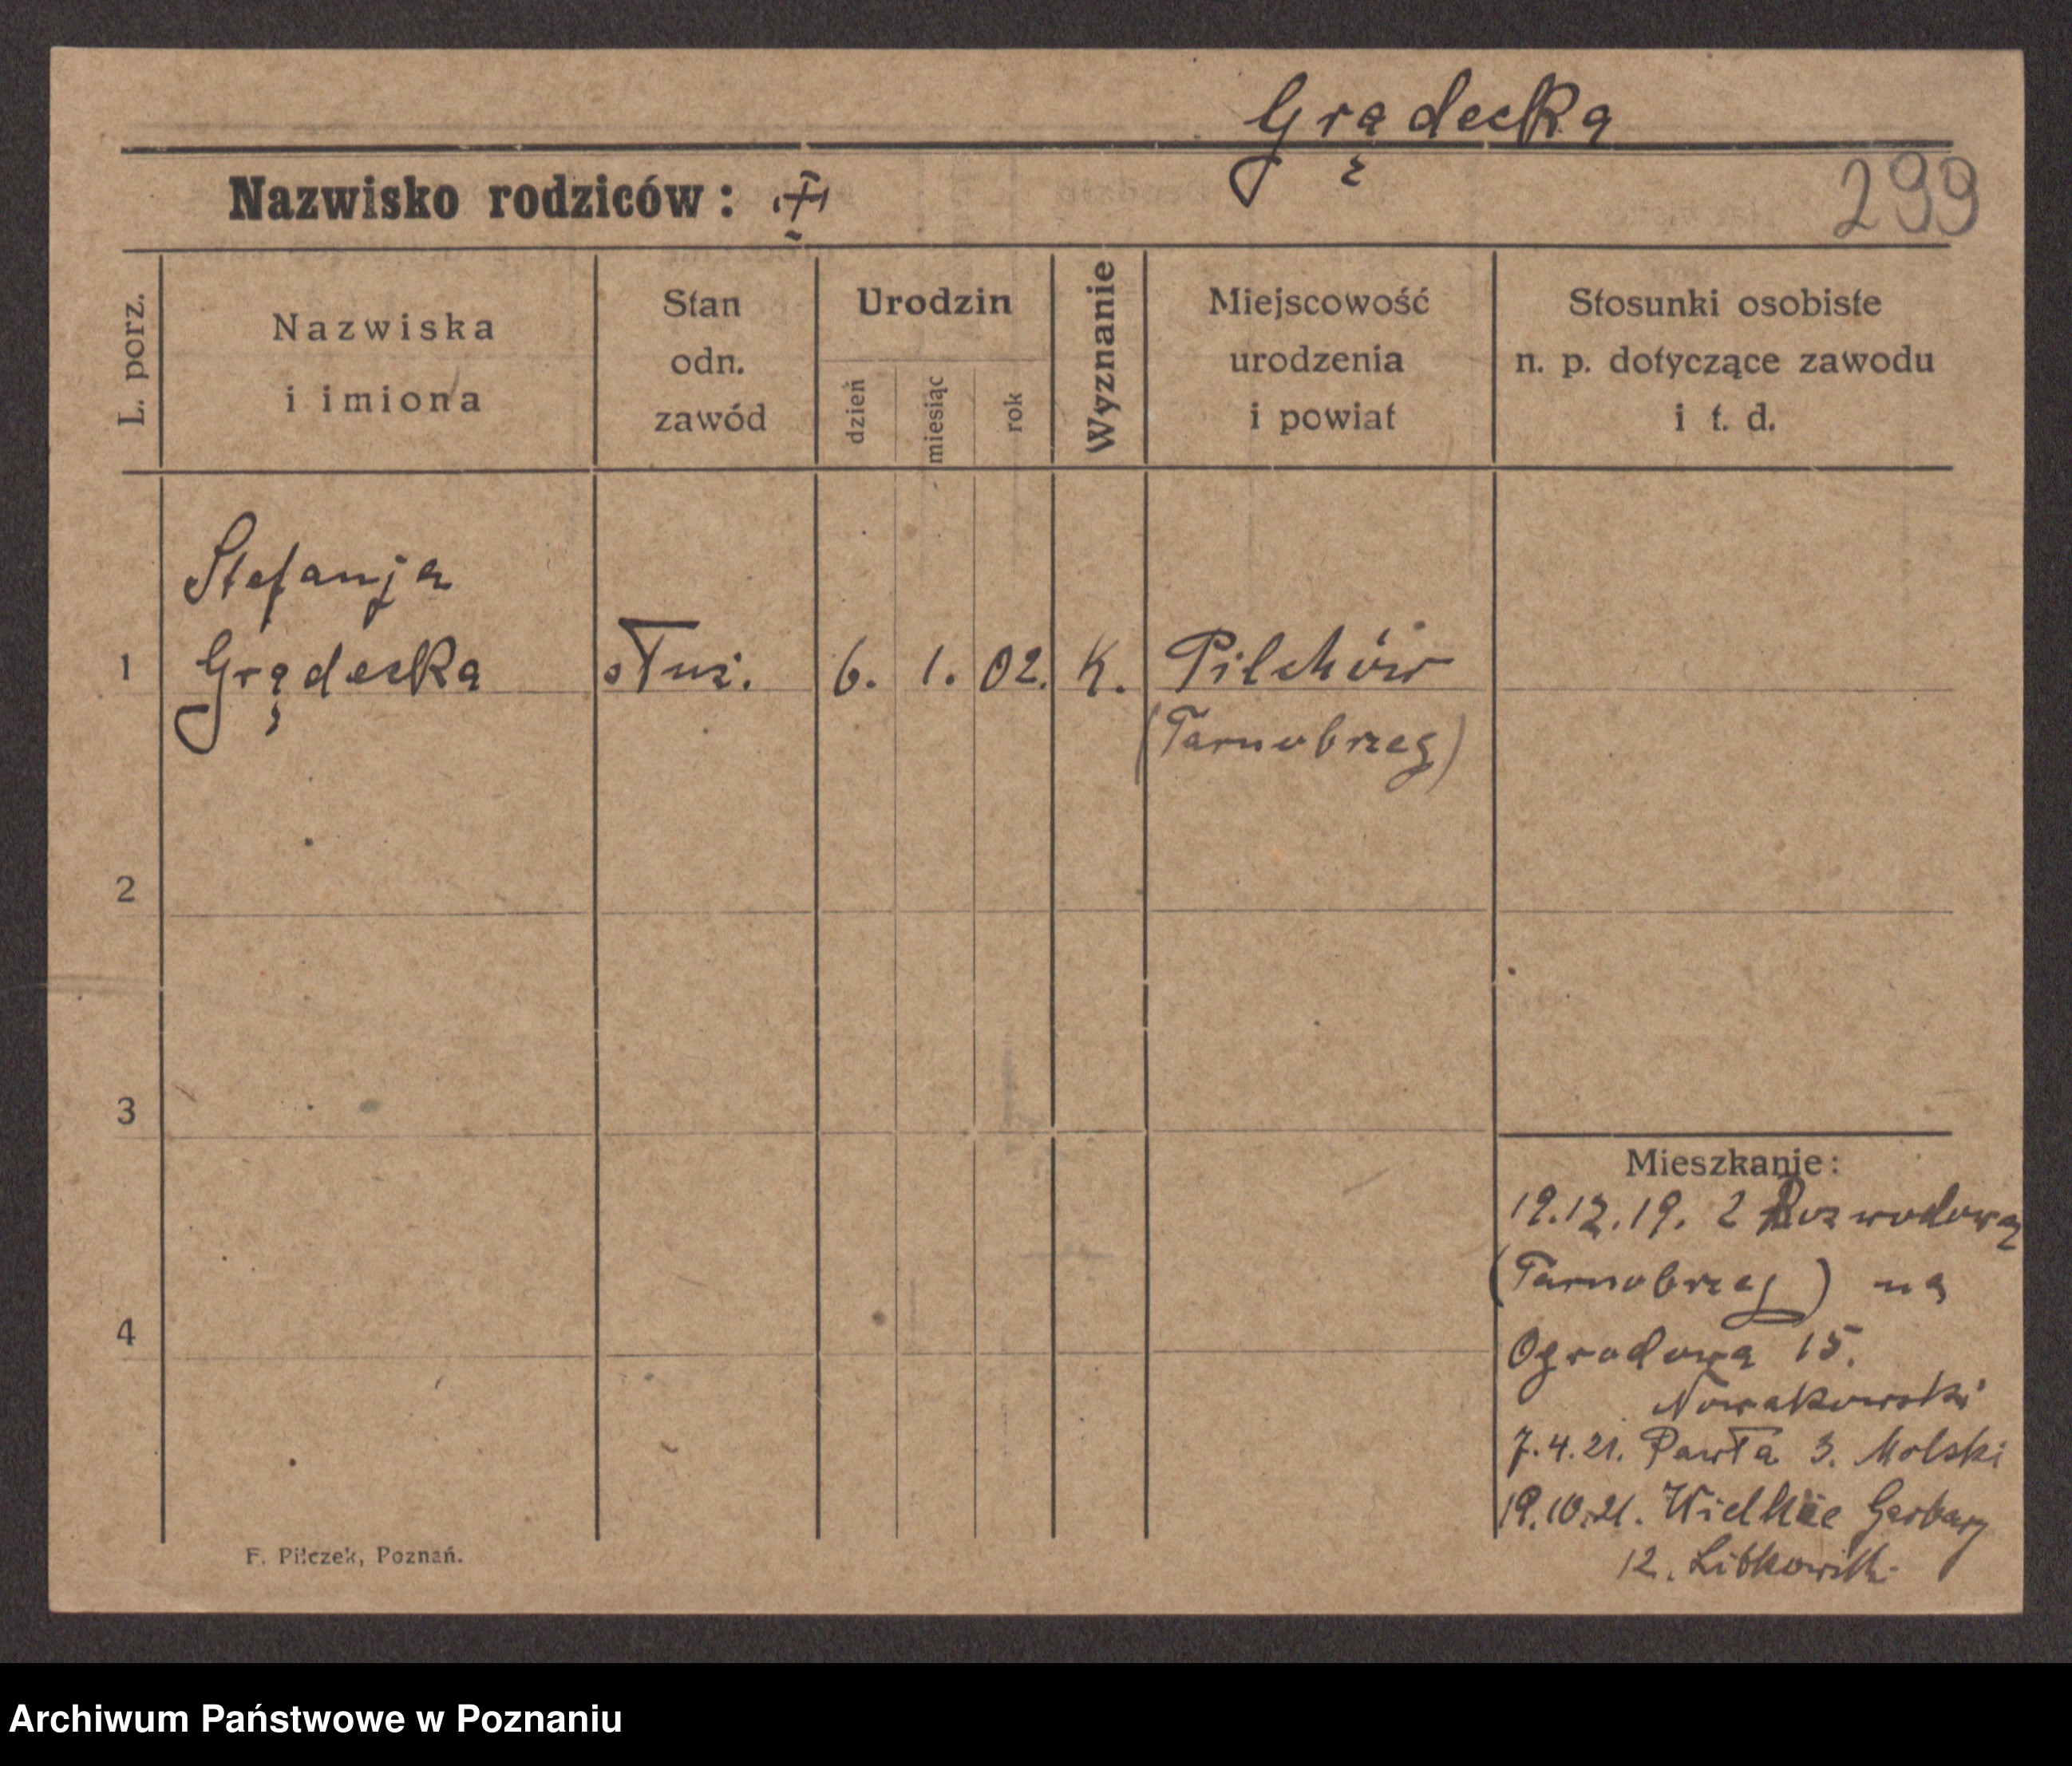 Grądecka
Nazwisko rodziców:
299
L. porz.
Nazwiska
i imiona
Stan
odn.
zawód
Urodzin
dzień
miesiąc
rok
Wyznanie
Miejscowość
urodzenia
i powiat
Stosunki osobiste
n. p. dotyczące zawodu
i t. d.
Stefanja
1 Grądecka służ. 6. 1. 02. K. Pilchów
(Tarnobrzeg)
2
3
4
Mieszkanie:
19.12.19. z Rozwadowa
(Tarnobrzeg) na
Ogrodowa 15.
Nowakowski
7.4.21. Pawła 3. Molski
19.10.21. Wielkie Garbary
12.
F. Pilczek, Poznań.
Archiwum Państwowe w Poznaniu